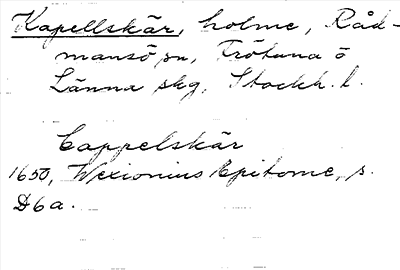 Kapellskär, holme, Råd-
mansö sn, Frötuna o
Länna skg, Stockh. l.
Cappelskär
1650, Wexionius Epitome, s.
D6a.